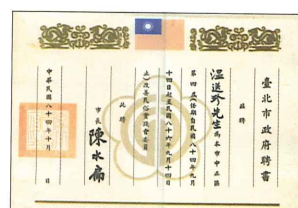 臺北市政府聘書
茲聘
溫送珍先生為本市中正區
第四五任期自民國八十四年九月
十四日起至民國八十六年九月十四日
止)改善民俗實踐會委員
此聘
市長 陳水扁
中華民國八十四年十月 日